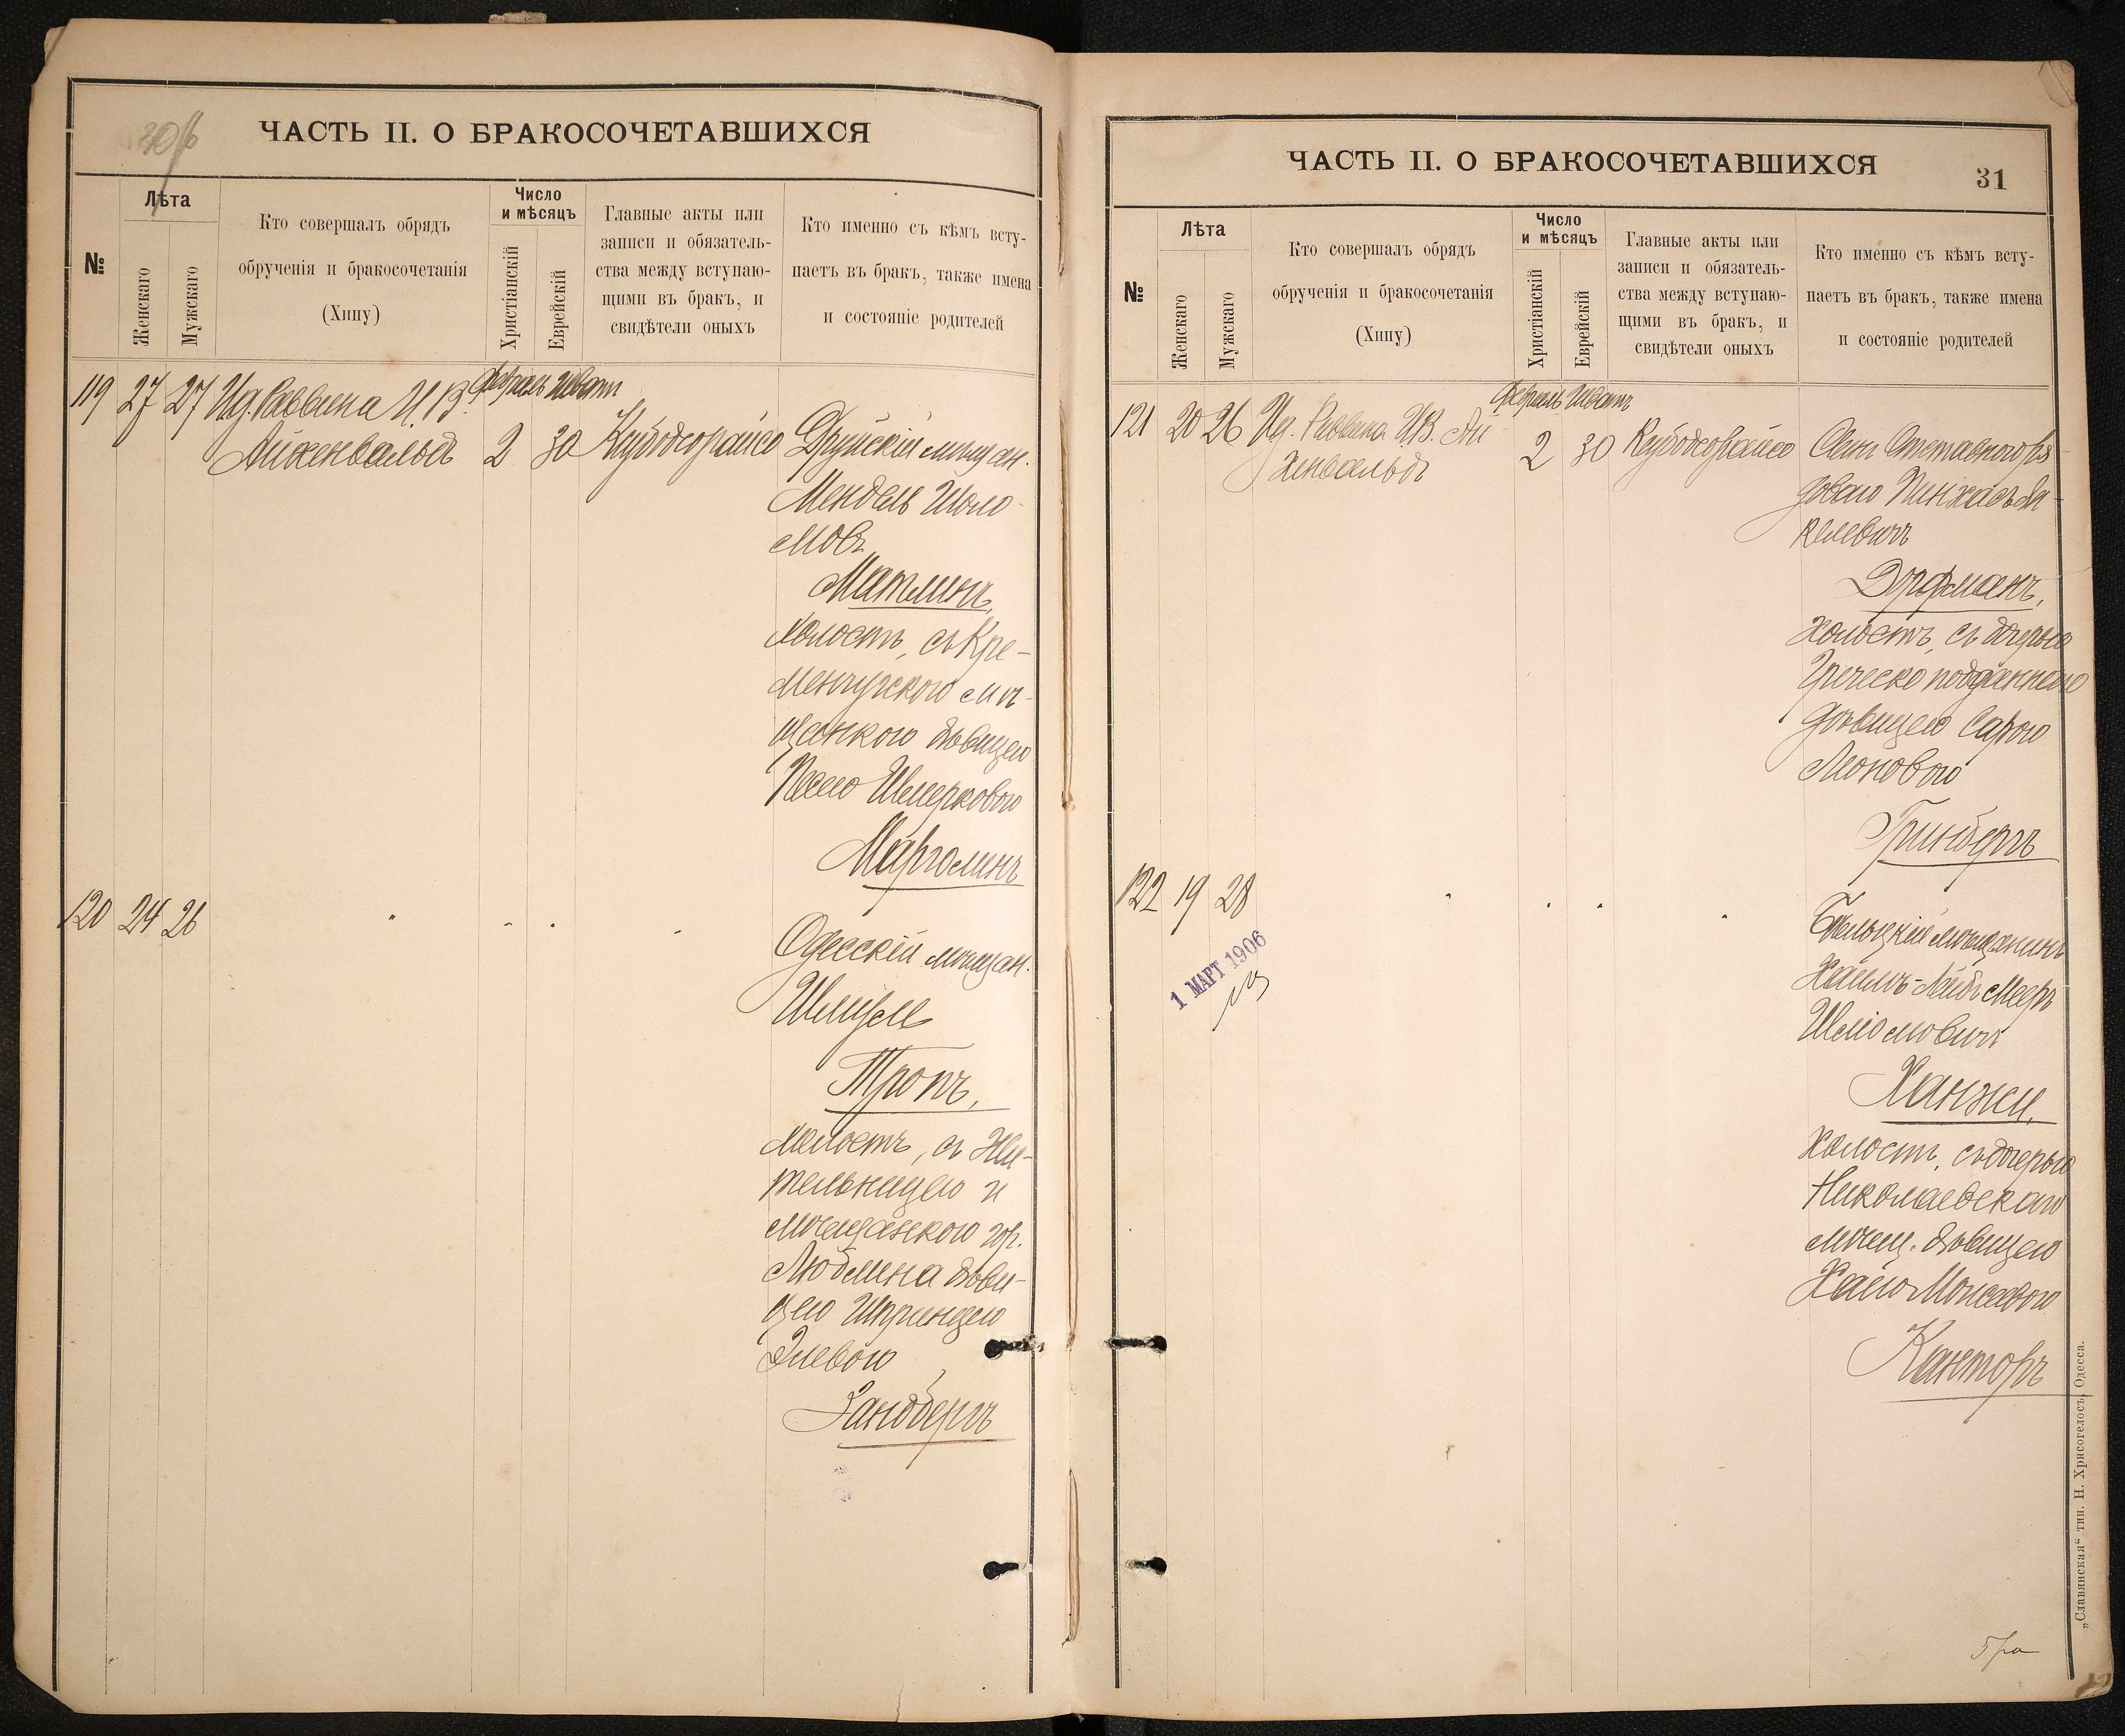 30 об
ЧАСТЬ II. О БРАКОСОЧЕТАВШИХСЯ
№
Лѣта
Женскаго
Мужскаго
Кто совершалъ обрядъ
обрученія и бракосочетанія
(Хипу)
Число
и мѣсяцъ
Христіанскій
Еврейскій
Главные акты или
записи и обязатель-
ства между вступаю-
щими въ бракъ, и
свидѣтели оныхъ
Кто именно съ кѣмъ всту-
паетъ въ бракъ, также имена
и состояніе родителей
Февраль Шватъ
119 27 27 И д. Раввина И. В.
Айхенвальдъ 2 30 Кцубодсорайсо Друйскій мѣщан.
Мендель Шоло-
мовъ
Матлинъ,
холостъ, съ Кре-
менчугскою мѣ-
щанкою дѣвицею
Песею Шмерковою
Марголинъ
120 24 26 " " " "
Одесскій мѣщан.
Шмуль
Тропъ,
холостъ, съ Жи-
тельницею и
мѣщанкою гор.
Люблина дѣви-
цею Шпринцею
Элевою
Зандбергъ
ЧАСТЬ II. О БРАКОСОЧЕТАВШИХСЯ
31
№
Лѣта
Женскаго
Мужскаго
Кто совершалъ обрядъ
обрученія и бракосочетанія
(Хипу)
Число
и мѣсяцъ
Христіанскій
Еврейскій
Главные акты или
записи и обязатель-
ства между вступаю-
щими въ бракъ, и
свидѣтели оныхъ
Кто именно съ кѣмъ всту-
паетъ въ бракъ, также имена
и состояніе родителей
Февраль Шватъ
121 20 26 И д. Раввина И. В. Ай
хенвальдъ 2 30 Кцубодсорайсо Сынъ Отставного ря
доваго Пинхасъ Ян-
келевичъ
Дорфманъ,
холостъ, съ дочерью
Греческо подданнаго
дѣвицею Сарою
Леоновою
Гринбергъ
122 19 28 " " " "
Бѣльцкій мѣщанинъ
Хаимъ-Лейб Мееръ
Шліомовичъ
Ханжи,
холостъ, съ дочерью
Николаевскаго
мѣщ. дѣвицею
Хаею Моисеевою
Канторъ
1 МАРТ 1906
„Славянская“ тип. Н. Хрисогелосъ, Одесса.